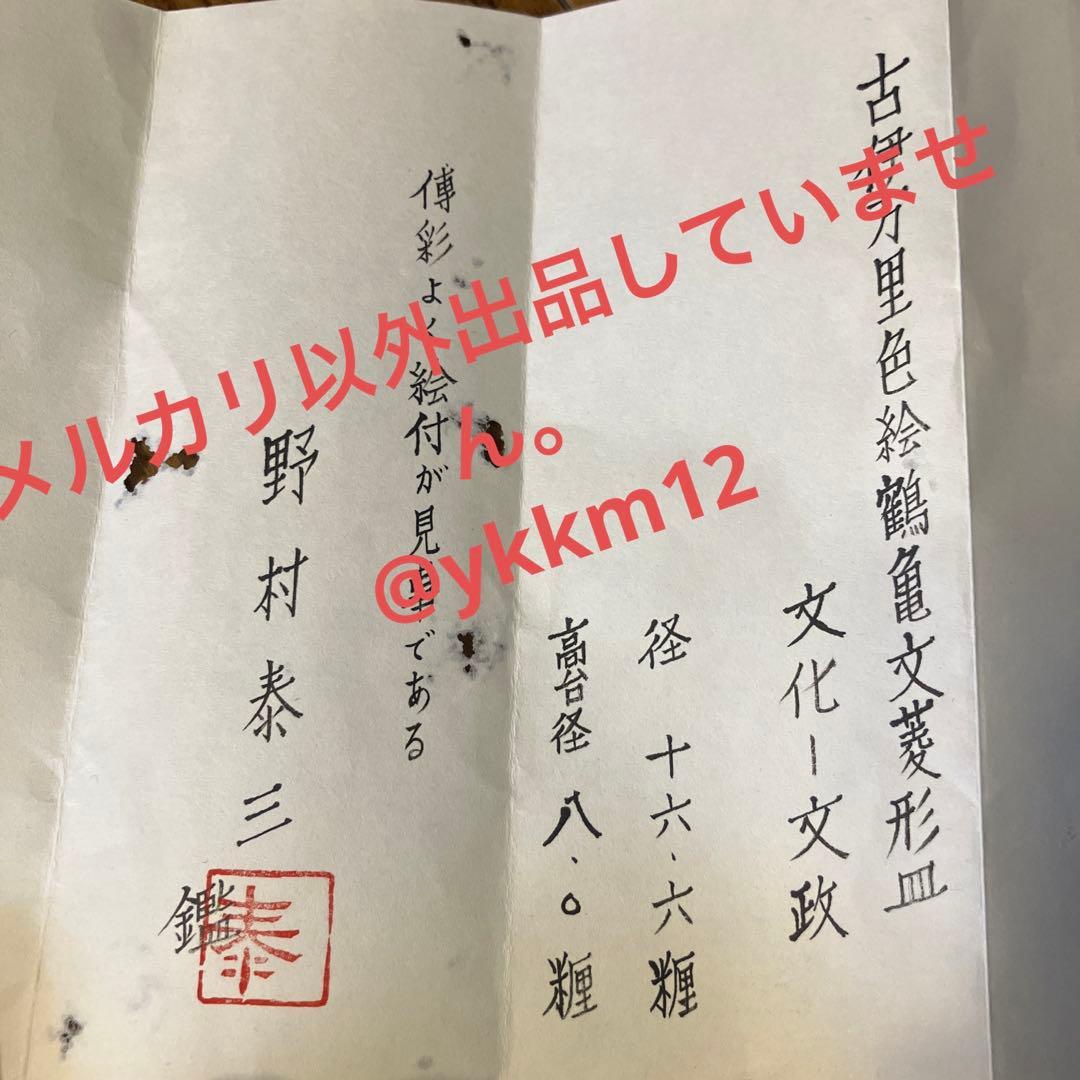 古伊万里色絵鶴亀文菱形皿
文化ー文政
径 十六.六糎
高台径 八.○糎
傅彩よく絵付が見事である
野村泰三
鑑
泰
メルカリ以外出品していませ
ん。
@ykkm12